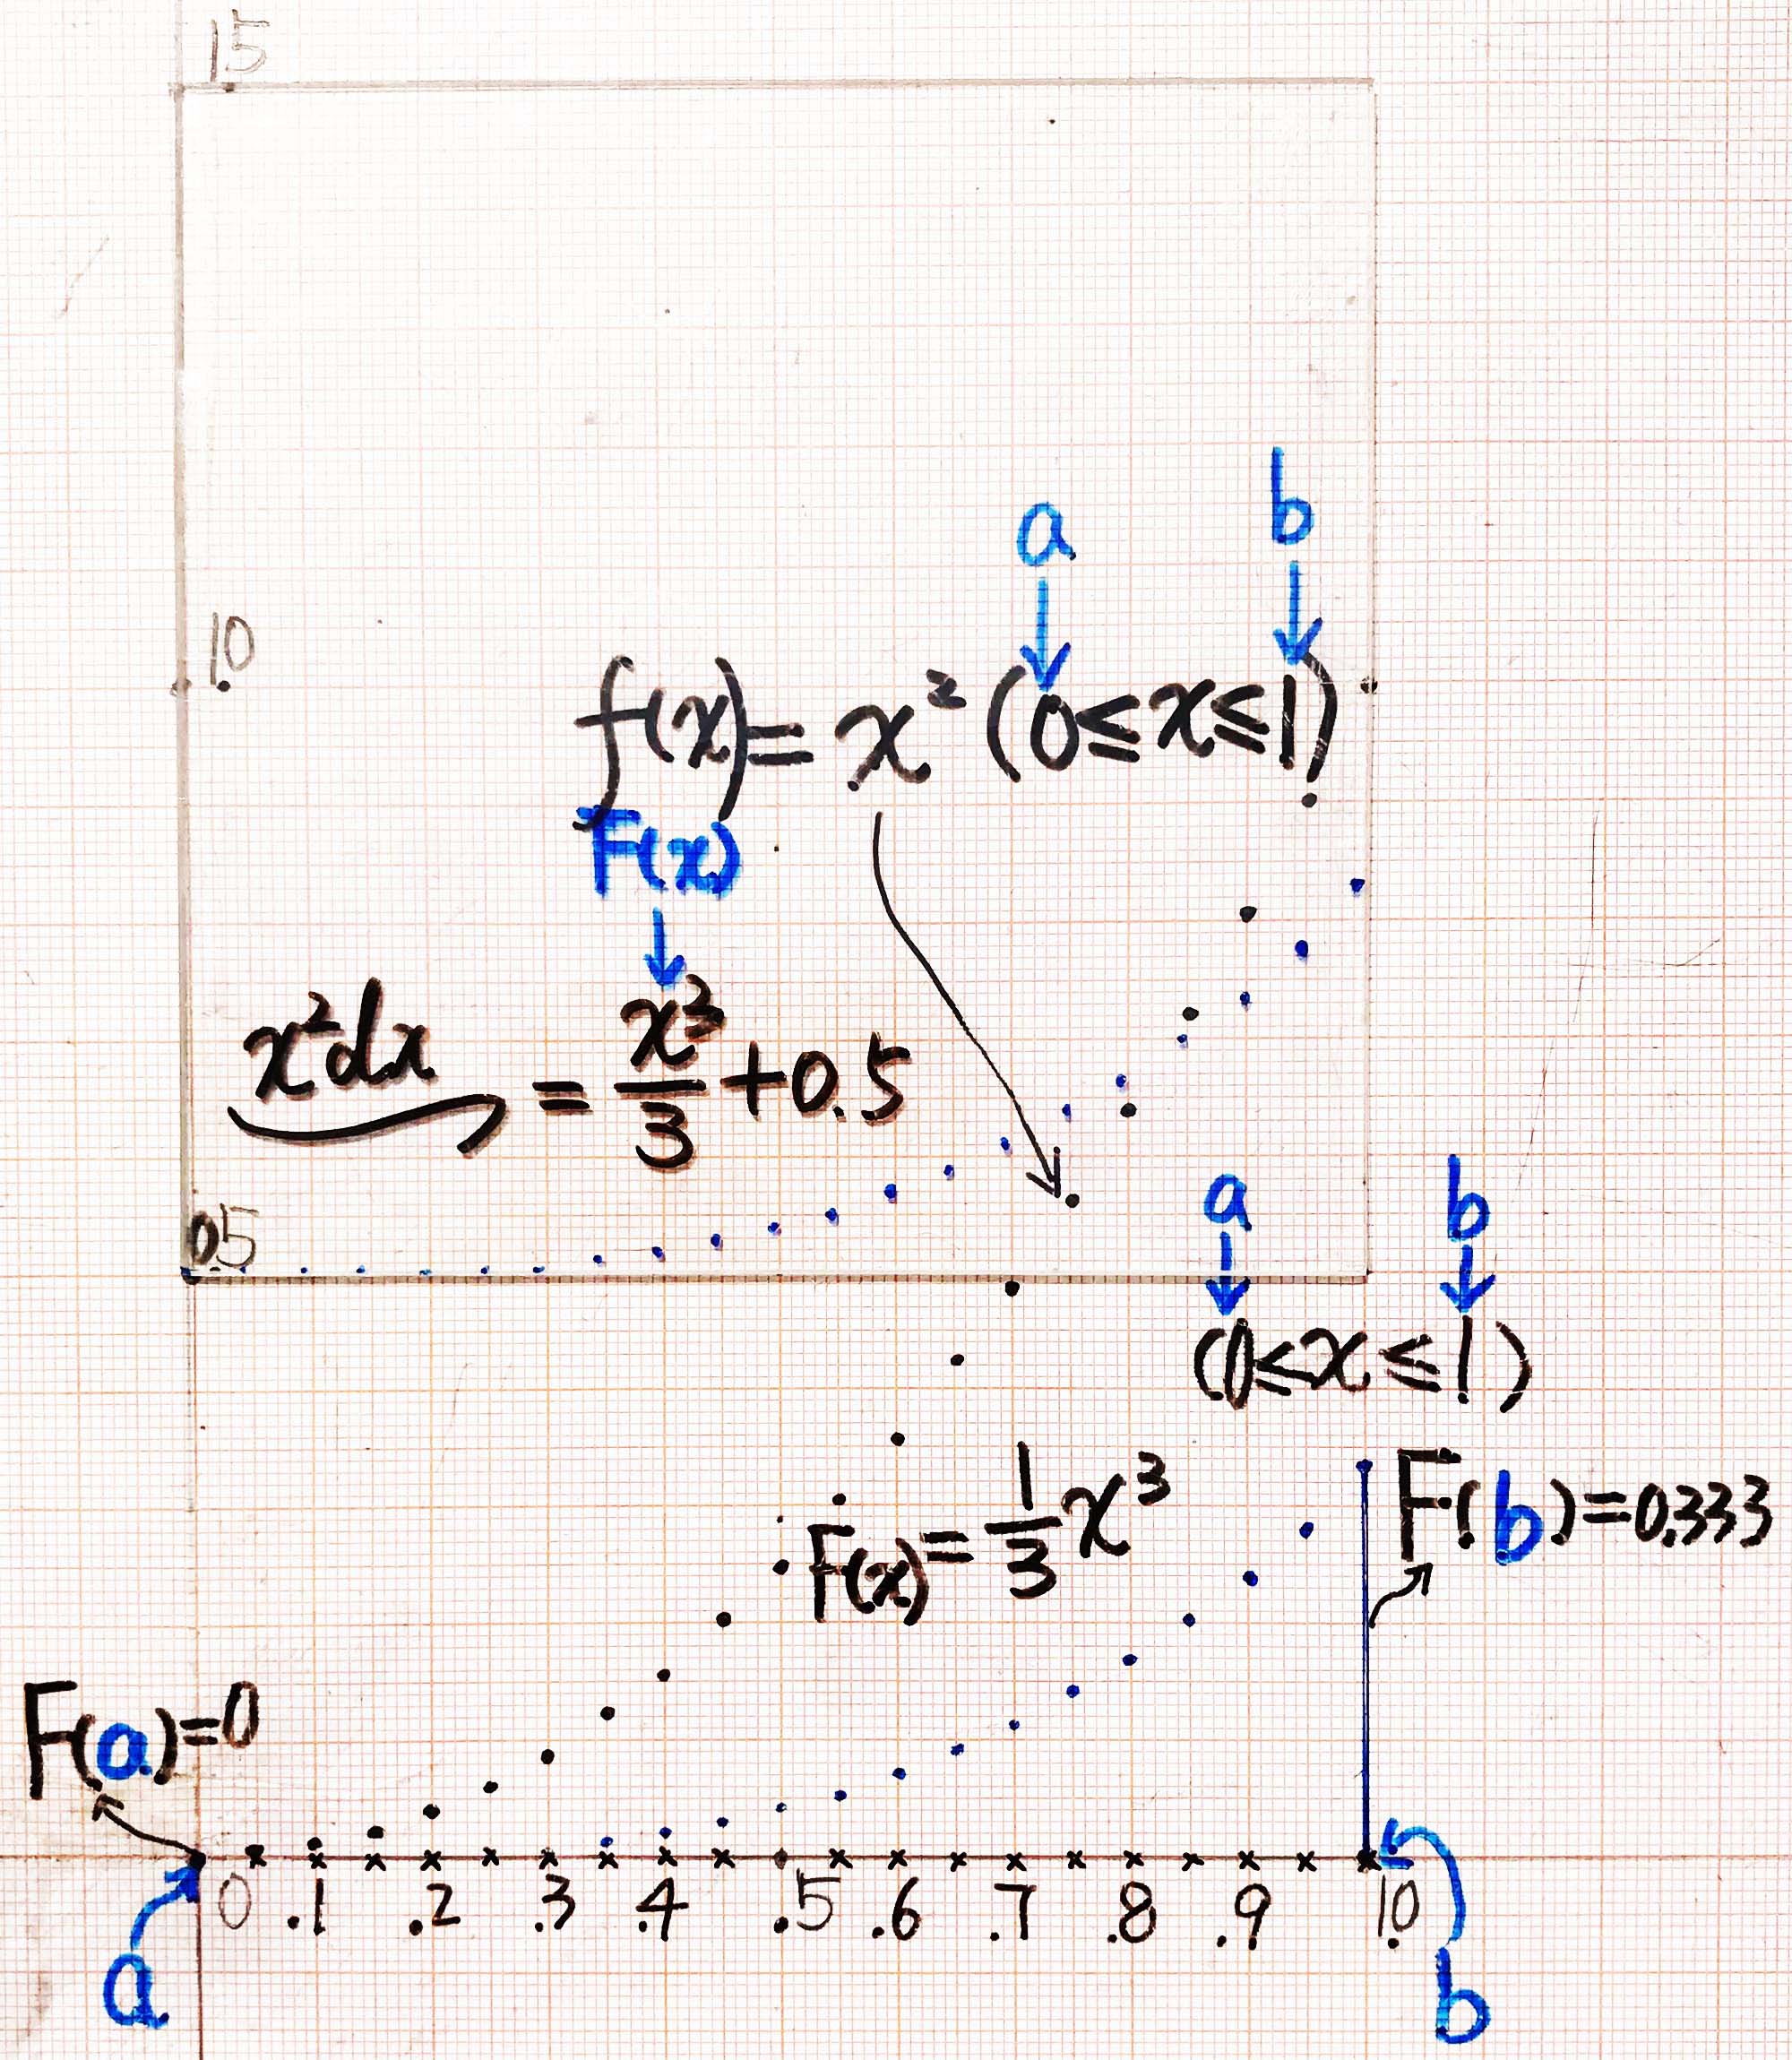 1.5
a b
1.0
f(x) = x² (0≤x≤1)
F(x)
x²dx = x³/3 + 0.5
0.5
a b
(0≤x≤1)
F(x) = 1/3 x³
F(b)=0.333
F(a)=0
0 .1 .2 .3 .4 .5 .6 .7 .8 .9 1.0
a b